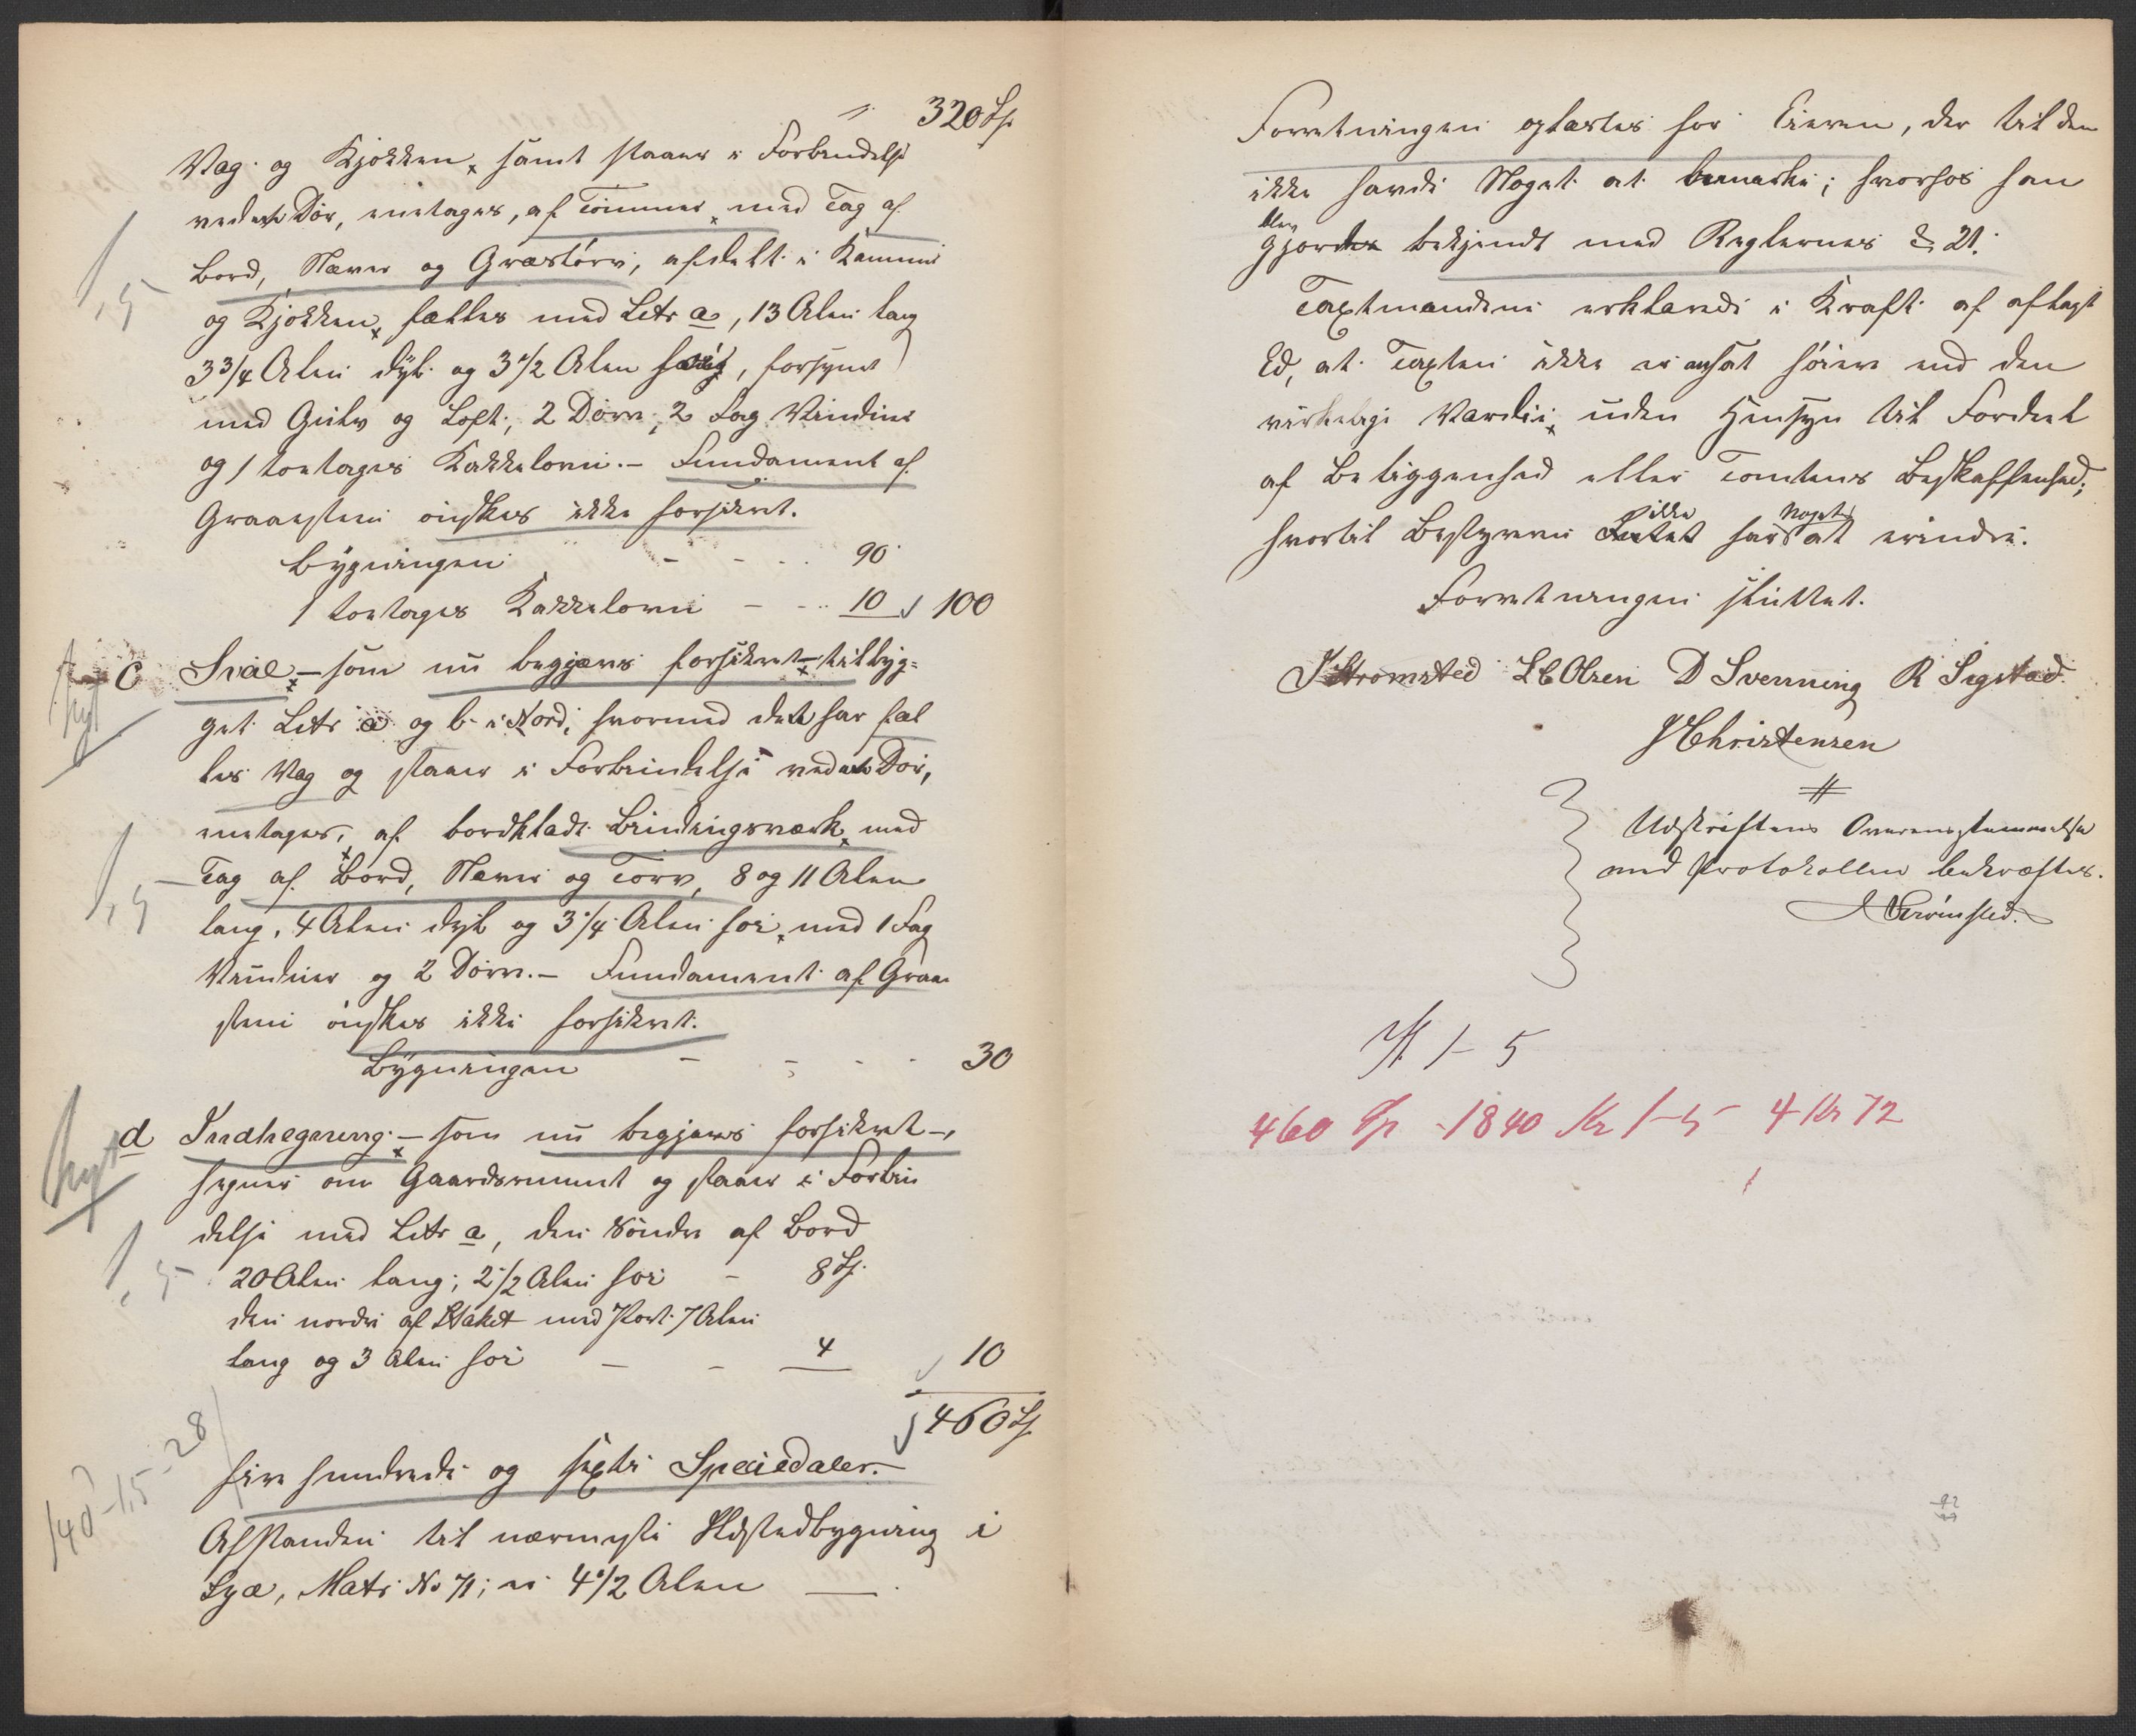 320 Sp.
Væg og Kjøkken, samt staaer i Forbindelse
ved et Dør, enetages, af Tømmer, med Tag af
Bord, Næver og Græstørv, afdelt i Kammer
og Kjøkken, fælles med Litr a, 13 Alen lang
3 3/4 Alen dyb og 3 1/2 Alen høi, forsynet
med Gulv og Loft, 2 Døre, 2 Fag Vinduer
og 1 toetages Kakkelovn. – Fundament af
Graasteen ønskes ikke forsikret.
Bygningen - - - 90
1 toetages Kakkelovn - - 10 100
nyt
c Sval – som nu begjæres forsikret – tilbyg=
get Litr a og b i Nord, hvormed det har fæl
les Væg og staaer i Forbindelse ved et Dør,
enetages, af bordklædt Bindingsværk, med
Tag af Bord, Næver og Torv, 8 og 11 Alen
lang, 4 Alen dyb og 3 1/4 Alen høi, med 1 Fag
Vinduer og 2 Døre. – Fundament af Graa
steen ønskes ikke forsikret.
Bygningen - - - - 30
nyt
d Indhegning – som nu begjæres forsikret –,
hegner om Gaardsrummet og staaer i Forbin
delse med Litr a, den søndre af Bord
20 Alen lang, 2 1/2 Alen høi - 8 Sp.
den nordre af Staket med Port 7 Alen
lang og 3 Alen høi - - 4 10
460 Sp.
fire hundrede og sexti Speciedaler.
140 - 1,5 - 28
Afstanden til nærmeste Ildstedbygning i
Lyæ, Matr No 71, er 4 1/2 Alen —
Forretningen oplæstes for Eieren, der til den
ikke havde Noget at bemærke; hvorhos han
blev
gjordes bekjendt med Reglernes § 21.
Taxtmændene erklærede i Kraft af aflagt
Ed, at Taxten ikke er ansat høiere end den
virkelige Værdie, uden Hensyn til Fordeel
af Beliggenhed eller Tomtens Beskaffenhed;
ikke Noget
hvortil Bestyreren Intet har at erindre.
Forretningen sluttet.
J Strømsted L C Olsen D Svenning R Sigstad
J Christensen
Udskriftens Overensstemmelse
med Protokollen bekræftes.
J Strømsted.
1 - 5
460 Sp - 1840 Kr 1-5 4 Kr 72